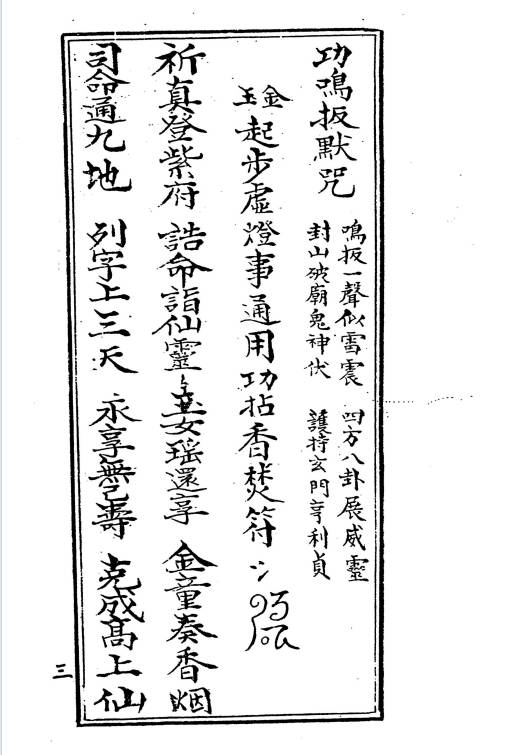 功鳴扳默咒
鳴扳一聲似雷震 四方八卦展威靈
封山破廟鬼神伏 護持玄門亨利貞
金玉起步虛燈事通用功拈香焚符
祈真登紫府 誥命詣仙靈 玉女瑶還享 金童奏香烟
司命通九地 列字上三天 永享無亡壽 克成高上仙
三